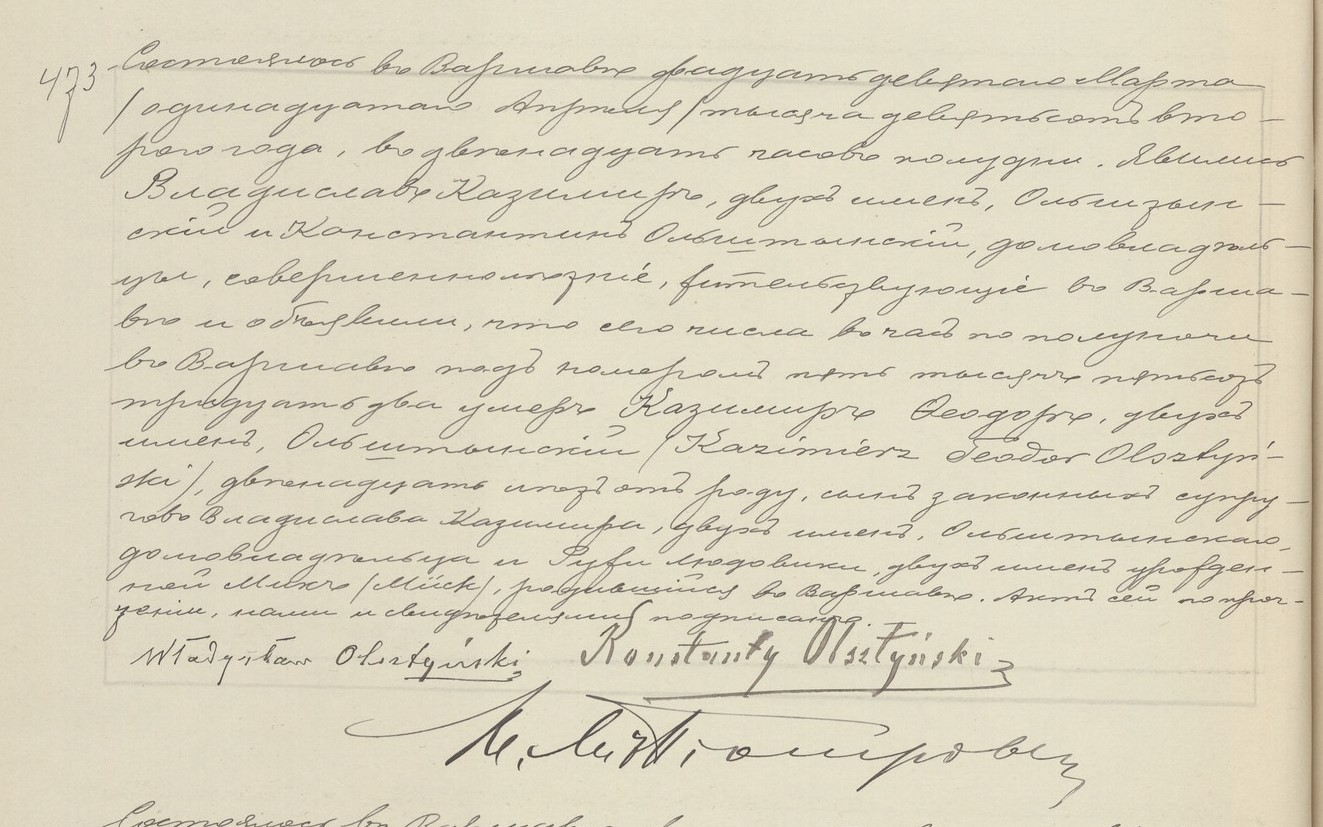 473 Состоялось въ Варшавѣ двадцать девятаго Марта
/одинадцатаго Апрѣля/ тысяча девятьсотъ вто-
рого года, въ двѣнадцать часовъ полудни. Явились
Владиславъ Казимиръ, двухъ именъ, Ольштын-
скій и Константинъ Ольштынскій, домовладѣль-
цы, совершеннолѣтніе, жительствующіе въ Варша-
вѣ и объявили, что сего числа въ часъ по полуночи
въ Варшавѣ подъ номеромъ пять тысячъ пятьсотъ
тридцать два умеръ Казимиръ Ѳеодоръ, двухъ
именъ, Ольштынскій (Kazimierz Teodor Olsztyń-
ski), двѣнадцать лѣтъ отъ роду, сынъ законныхъ супру-
говъ Владислава Казимира, двухъ именъ, Ольштынскаго,
домовладѣльца и Руфи Людовики, двухъ именъ урожден-
ной Микъ (Mück), родившійся въ Варшавѣ. Актъ сей по проч-
теніи, нами и свидѣтелями подписанъ.
Władysław Olsztyński Konstanty Olsztyński
Состоялось въ Варшавѣ